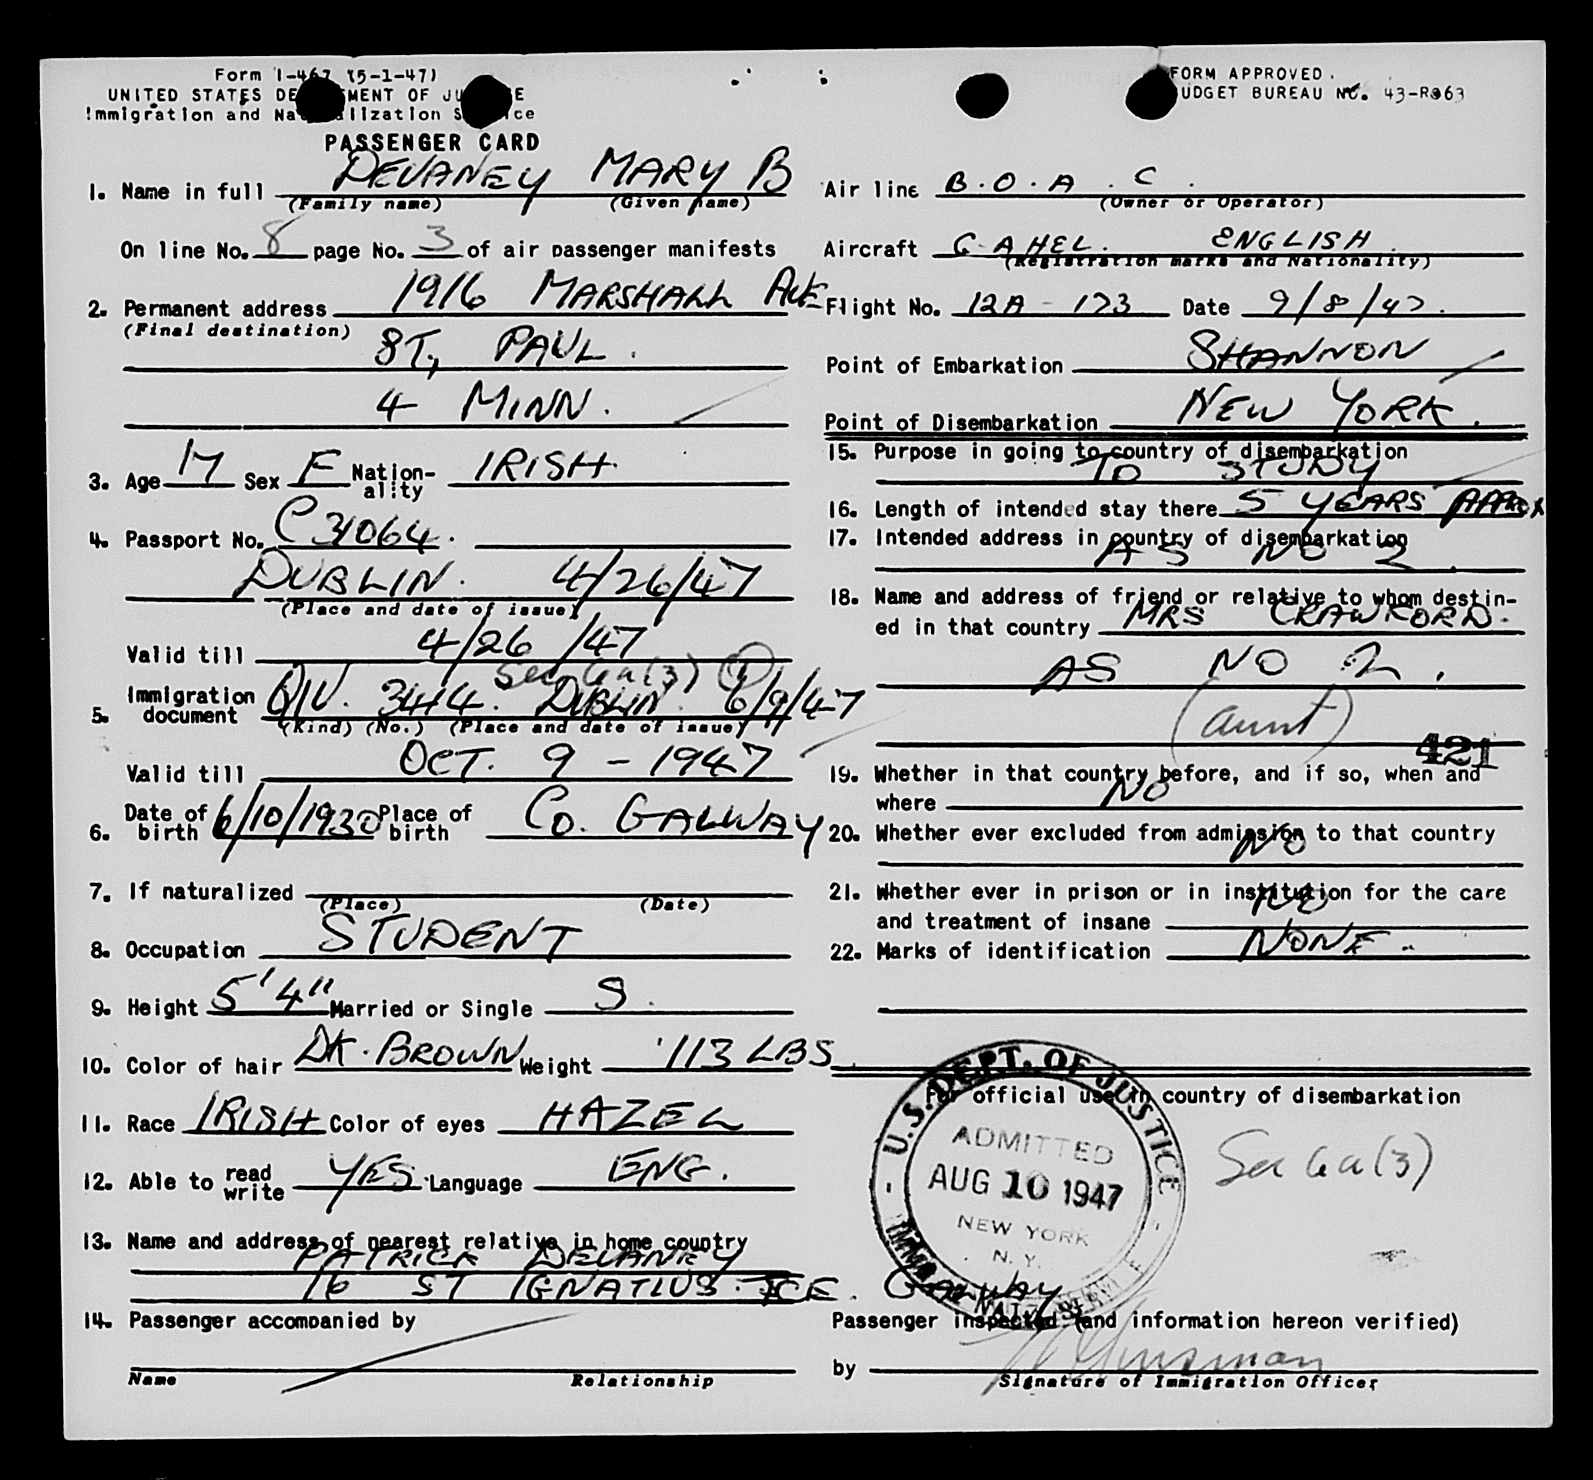 Form I-467 (5-1-47)
UNITED STATES DE MENT OF JU E
Immigration and Na lization S ice
PASSENGER CARD
FORM APPROVED.
UDGET BUREAU NO. 43-R063
1. Name in full DEVANEY MARY B
(Family name) (Given name)
On line No. 8 page No. 3 of air passenger manifests
2. Permanent address 1916 MARSHALL AVE
(Final destination)
ST, PAUL.
4 MINN.
3. Age 17 Sex F Nation-ality IRISH.
4. Passport No. C 31064.
DUBLIN. 4/26/47
(Place and date of issue)
Valid till 4/26/47
Sec 6a(3)
5. Immigration document QIV. 3414. DUBLIN. 6/9/47
(Kind) (No.) (Place and date of issue)
Valid till OCT. 9 - 1947
6. Date of birth 6/10/1930 Place of birth CO. GALWAY
7. If naturalized
(Place) (Date)
8. Occupation STUDENT
9. Height 5'4" Married or Single S.
10. Color of hair DK. BROWN Weight 113 LBS.
11. Race IRISH Color of eyes HAZEL
12. Able to read write YES Language ENG.
13. Name and address of nearest relative in home country
PATRICK DEVANEY
16 ST IGNATIUS TCE. GALWAY
14. Passenger accompanied by
Name Relationship
Air line B.O.A.C.
(Owner or Operator)
Aircraft G-AHEL. ENGLISH.
(Registration marks and Nationality)
Flight No. 12A - 173 Date 9/8/47.
Point of Embarkation SHANNON
Point of Disembarkation NEW YORK.
15. Purpose in going to country of disembarkation
TO STUDY
16. Length of intended stay there 5 YEARS APPROX
17. Intended address in country of disembarkation
AS NO 2.
18. Name and address of friend or relative to whom destin-
ed in that country MRS CRAWFORD.
AS NO 2.
(aunt)
421
19. Whether in that country before, and if so, when and
where NO
20. Whether ever excluded from admission to that country
NO
21. Whether ever in prison or in institution for the care
and treatment of insane NO
22. Marks of identification NONE.
For official use in country of disembarkation
U.S. DEPT. OF JUSTICE
ADMITTED
AUG 10 1947
NEW YORK
N.Y.
Sec 6a(3)
Passenger inspected (and information hereon verified)
by
Signature of Immigration Officer